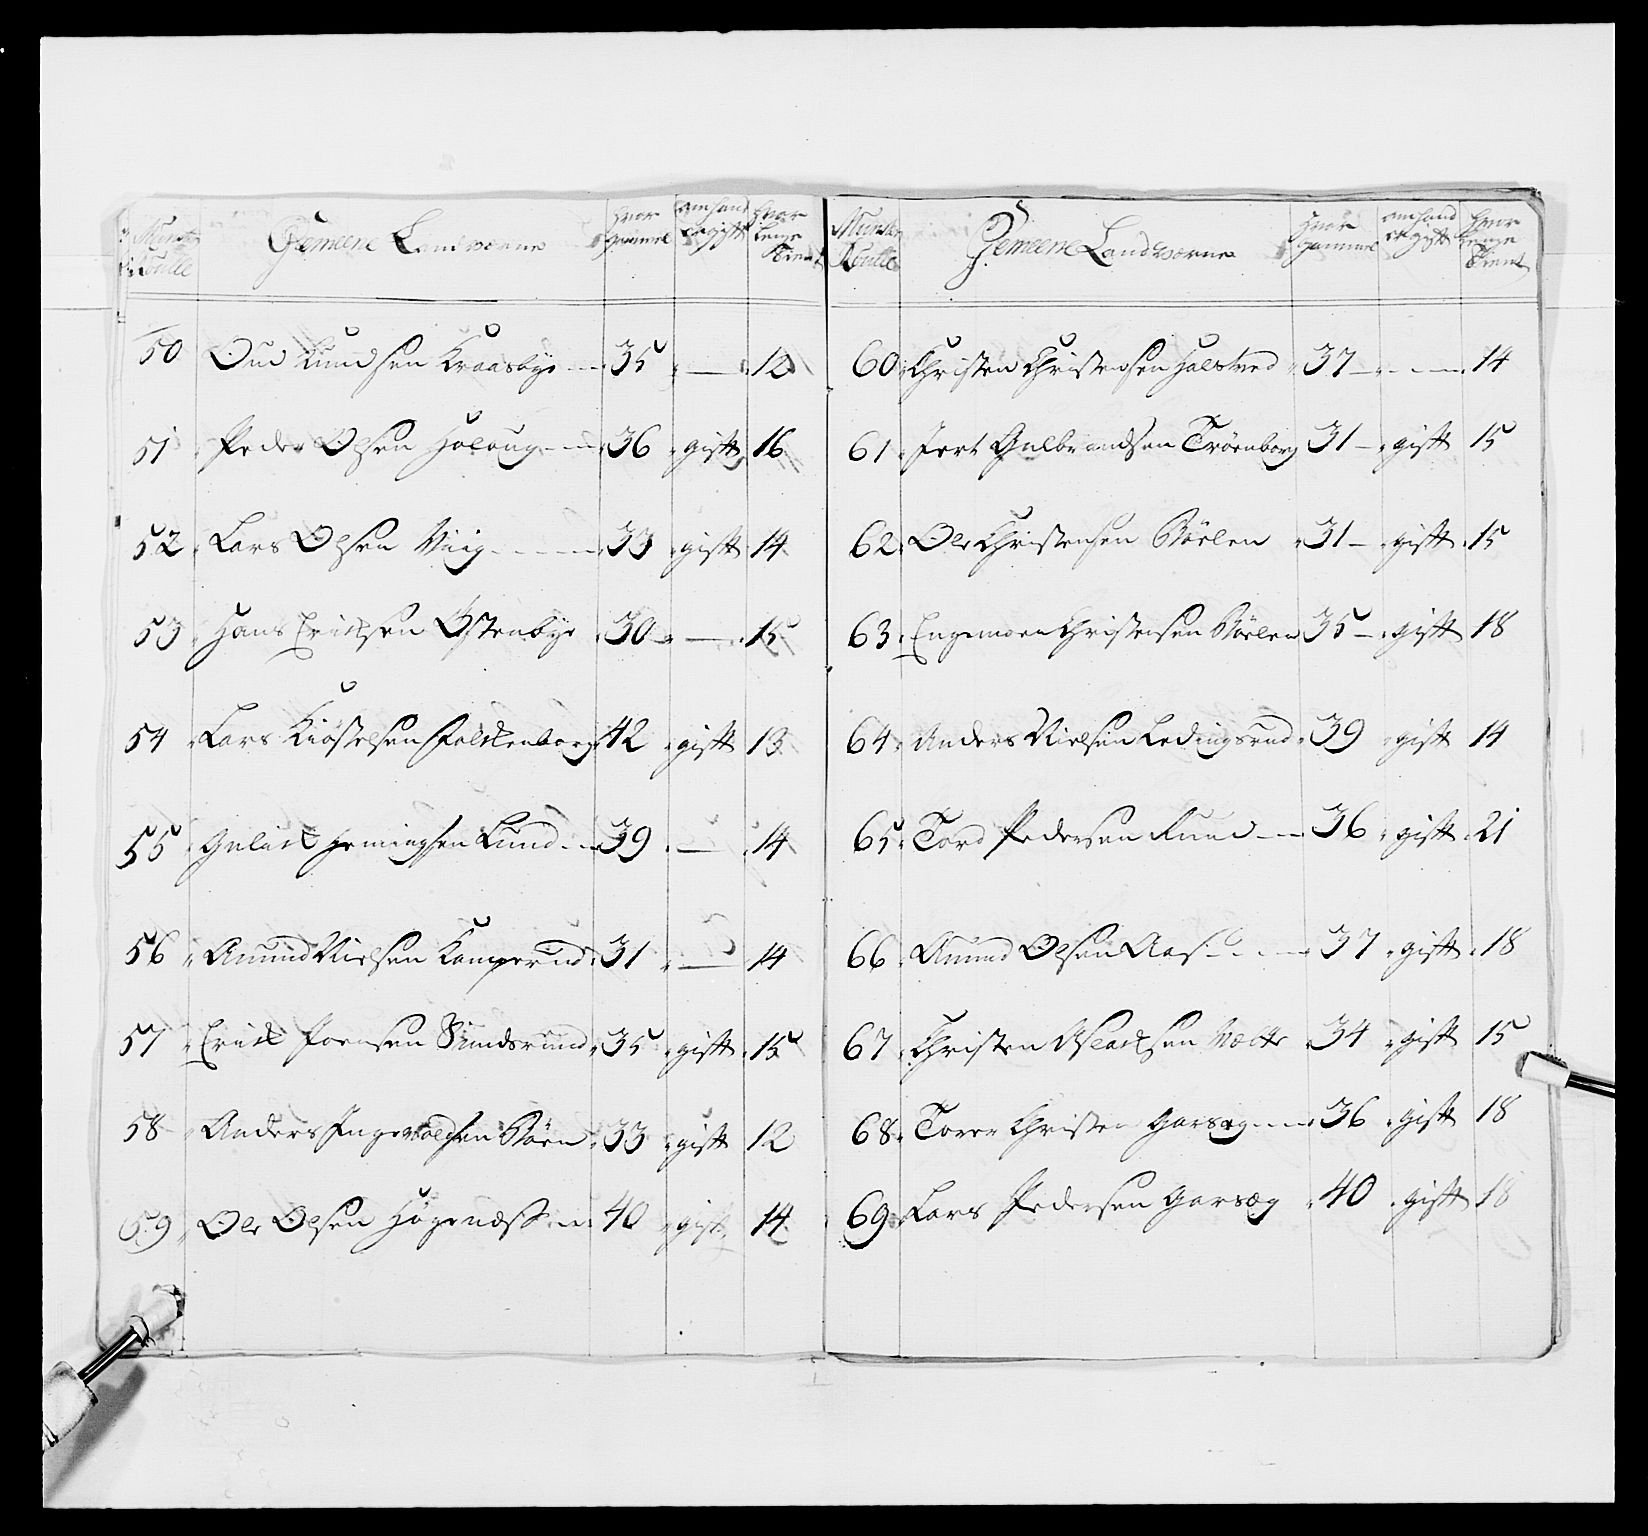 Munst Rulle Gemeene Landværne hvor gammel om hand er gift hvor lenge tient
50 Oud Knudsen Kraasbye 35 — 12
51 Peder Olsen Holoug 36 gift 16
52 Lars Olsen Viig 33 gift 14
53 Hans Erichsen Østenbye 30 — 15
54 Lars Kiøstelsen Falckenborg 42 gift 13
55 Gulick Hemingsen Lund 39 — 14
56 Amund Nielsen Kamperud 31 — 14
57 Erick Poensen Simdsrund 35 gift 15
58 Anders Ingevoldsen Støen 33 gift 12
59 Ole Olsen 40 gift 14
Munster Rulle Gemeene Landværne hvor gammel om hand er gift hvor lenge tient
60 Christen Christensen Halsted 37 — 14
61 Iver Gulbrandsen Trøenborg 31 gift 15
62 Ole Christensen Støelen 31 gift 15
63 Engemoen Christensen Støelen 35 gift 18
64 Anders Nielsen Ledingsrud 39 gift 14
65 Tord Pedersen Ruud 36 gift 21
66 Amund Olsen Aas 37 gift 18
67 Christen Aslacksen 34 gift 15
68 Torer Christen Garsæg 36 gift 18
69 Lars Pedersen Garsæg 40 gift 18